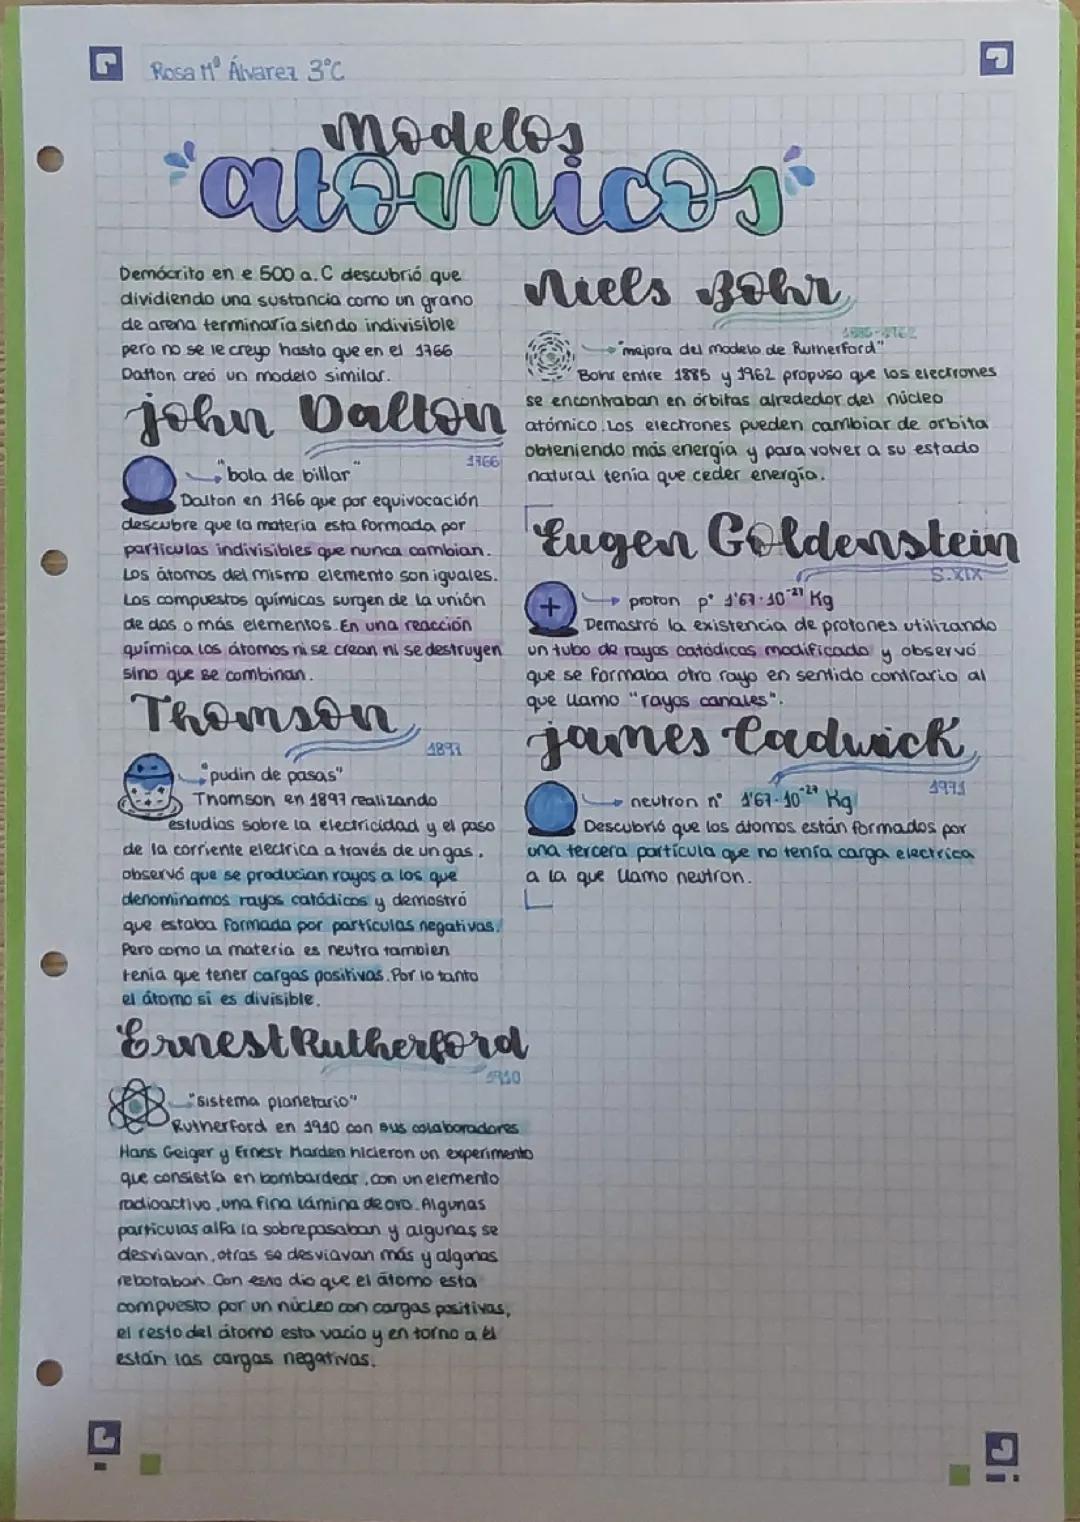 Rosa Mª Álvarez 3ºC
Modelos
"atomicos"
Demócrito en e 500 a.C descubrió que
dividiendo una sustancia como un grano
de arena terminaría siendo indivisible
pero no se le creyo hasta que en el 1766
Dalton creó un modelo similar.
john Dalton
1766
"bola de billar"
Dalton en 1766 que por equivocación
descubre que la materia esta formada por
partículas indivisibles que nunca cambian.
Los átomos del mismo elemento son iguales.
Los compuestos químicos surgen de la unión
de dos o más elementos. En una reacción
química los átomos ni se crean ni se destruyen
sino que se combinan.
Thomson
1897
"pudin de pasas"
Thomson en 1897 realizando
estudios sobre la electricidad y el paso
de la corriente electrica a través de un gas,
observó que se producian rayos a los que
denominamos rayos catódicos y demostró
que estaba formada por partículas negativas.
Pero como la materia es neutra tambien
tenia que tener cargas positivas. Por lo tanto
el átomo si es divisible.
Ernest Rutherford
1910
"sistema planetario"
Rutherford en 1910 con sus colaboradores
Hans Geiger y Ernest Marden hicieron un experimento
que consistía en bombardear, con un elemento
radioactivo, una fina lámina de oro. Algunas
particulas alfa la sobrepasaban y algunas se
desviavan, otras se desviavan más y algunas
rebotaban. Con esto dio que el átomo esta
compuesto por un núcleo con cargas positivas,
el resto del átomo esta vacio y en torno a él
están las cargas negativas.
Niels Bohr
1885-1962
"mejora del modelo de Rutherford"
Bohr entre 1885 y 1962 propuso que los electrones
se encontraban en órbitas alrededor del núcleo
atómico. Los electrones pueden cambiar de orbita
obteniendo más energía y para volver a su estado
natural tenía que ceder energía.
Eugen Goldenstein
S.XIX
+
proton p⁺ 1'67·10⁻²⁷ Kg
Demostró la existencia de protones utilizando
un tubo de rayos catódicos modificado y observó
que se formaba otro rayo en sentido contrario al
que llamo "rayos canales".
james Cadwick
1991
neutron nº 1'67·10⁻²⁷ Kg
Descubrió que los átomos están formados por
una tercera partícula que no tenía carga electrica
a la que llamo neutron.